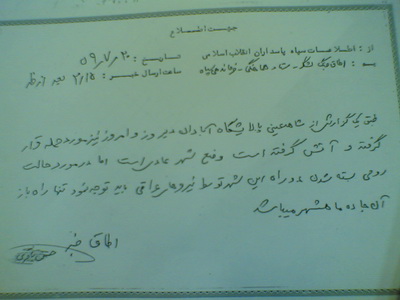 جهت اطلاع
از : اطلاعات سپاه پاسداران انقلاب اسلامی تاریخ : ۲۰ مهر ۵۹
به : اطاق جنگ لشگر - ستاد هماهنگی - فرماندهی سپاه ساعت ارسال خبر : ۲/۱۵ بعد از ظهر
طبق یک گزارش از شاهد عینی پالایشگاه آبادان دیروز و امروز نیز مورد حمله قرار
گرفته و آتش گرفته است وضع شهر عادی است اما در مورد حالت
روحی بسته شدن دو راه این شهر توسط نیروهای عراقی باید توجه نمود تنها راه باز
آن جاده ماهشهر میباشد
اطاق خبر